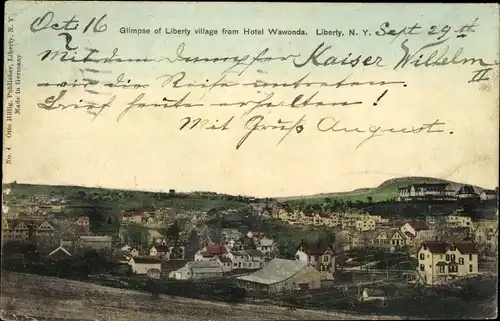 Oct 16
Glimpse of Liberty village from Hotel Wawonda. Liberty, N. Y. Sept 29th
Mit dem Dampfer Kaiser Wilhelm II
wird die Reise antreten
Brief heute erhalten!
Mit Gruß August.
No. 4 Otto Hillig, Publisher, Liberty, N. Y.
Made in Germany